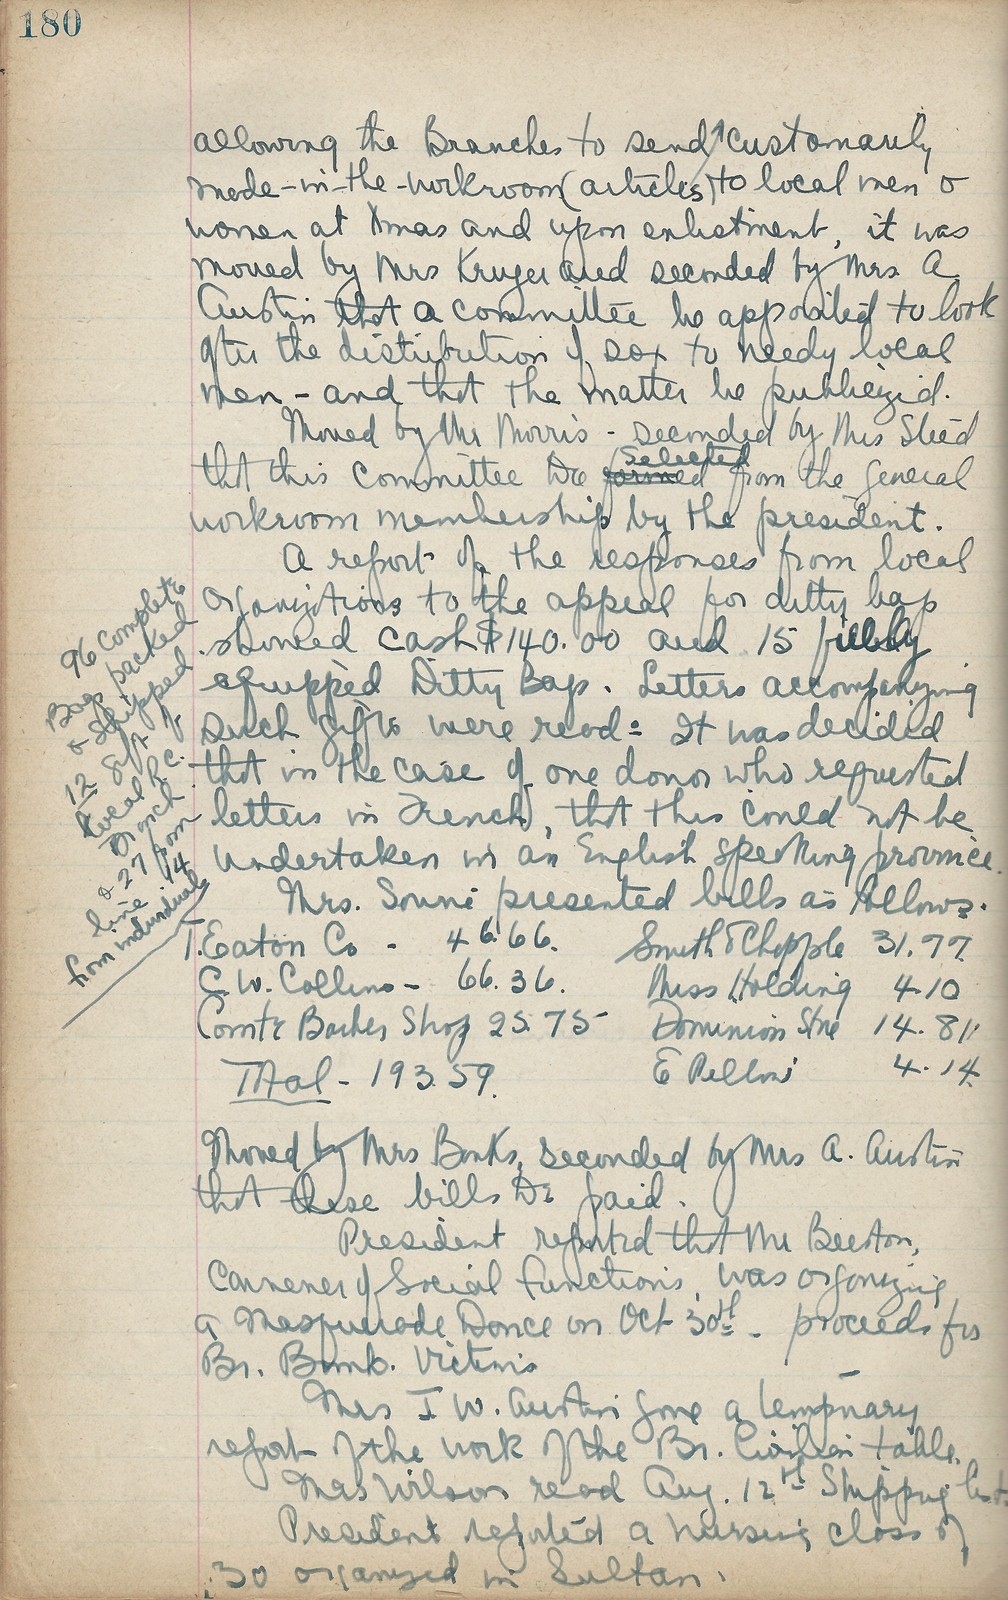 180
allowing the Branches to send customarily
made-in-the-workroom (articles) to local men &
women at Xmas and upon enlistment, it was
moved by Mrs Kruger and seconded by Mrs. A
Austin that a committee be appointed to look
after the distribution of sox to needy local
men - and that the matter be publicized.
Moved by Mrs Morris - seconded by Mrs Sleed
selected
that this Committee be formed from the general
workroom membership by the president.
A report of the responses from local
organizations to the appeal for ditty bags
showed cash $140.00 and 15 fully
equipped Ditty Bags. Letters accompanying
such gifts were read: It was decided
that in the case of one donor who requested
letters in French, that this could not be
undertaken in an English speaking province.
Mrs. Souni presented bills as follows.
96 complete
Bags packed
& shipped
12 gift of
Local R.C.
Branch
& 27 from
line 14
from individuals
T. Eaton Co - 46.66. Smith & Chapple 31.77
C.W. Collins - 66.36. Miss Holding 4.10
Barber Shop 25.75 Dominion Stre 14.81
Total - 193.59. E Pelloni 4.14
Moved by Mrs Banks, seconded by Mrs A. Austin
that these bills be paid.
President reported that Mr Beeston,
Convener of Social Functions, was organizing
a Masquerade Dance on Oct 30th - proceeds for
Br. Bomb. Victims
Mrs I W. Austin gave a temporary
report of the work of the Br. Civilian table.
Mrs Wilson read Aug. 12th Shipping list
President reported a nursing class of
30 organized in Sultan.